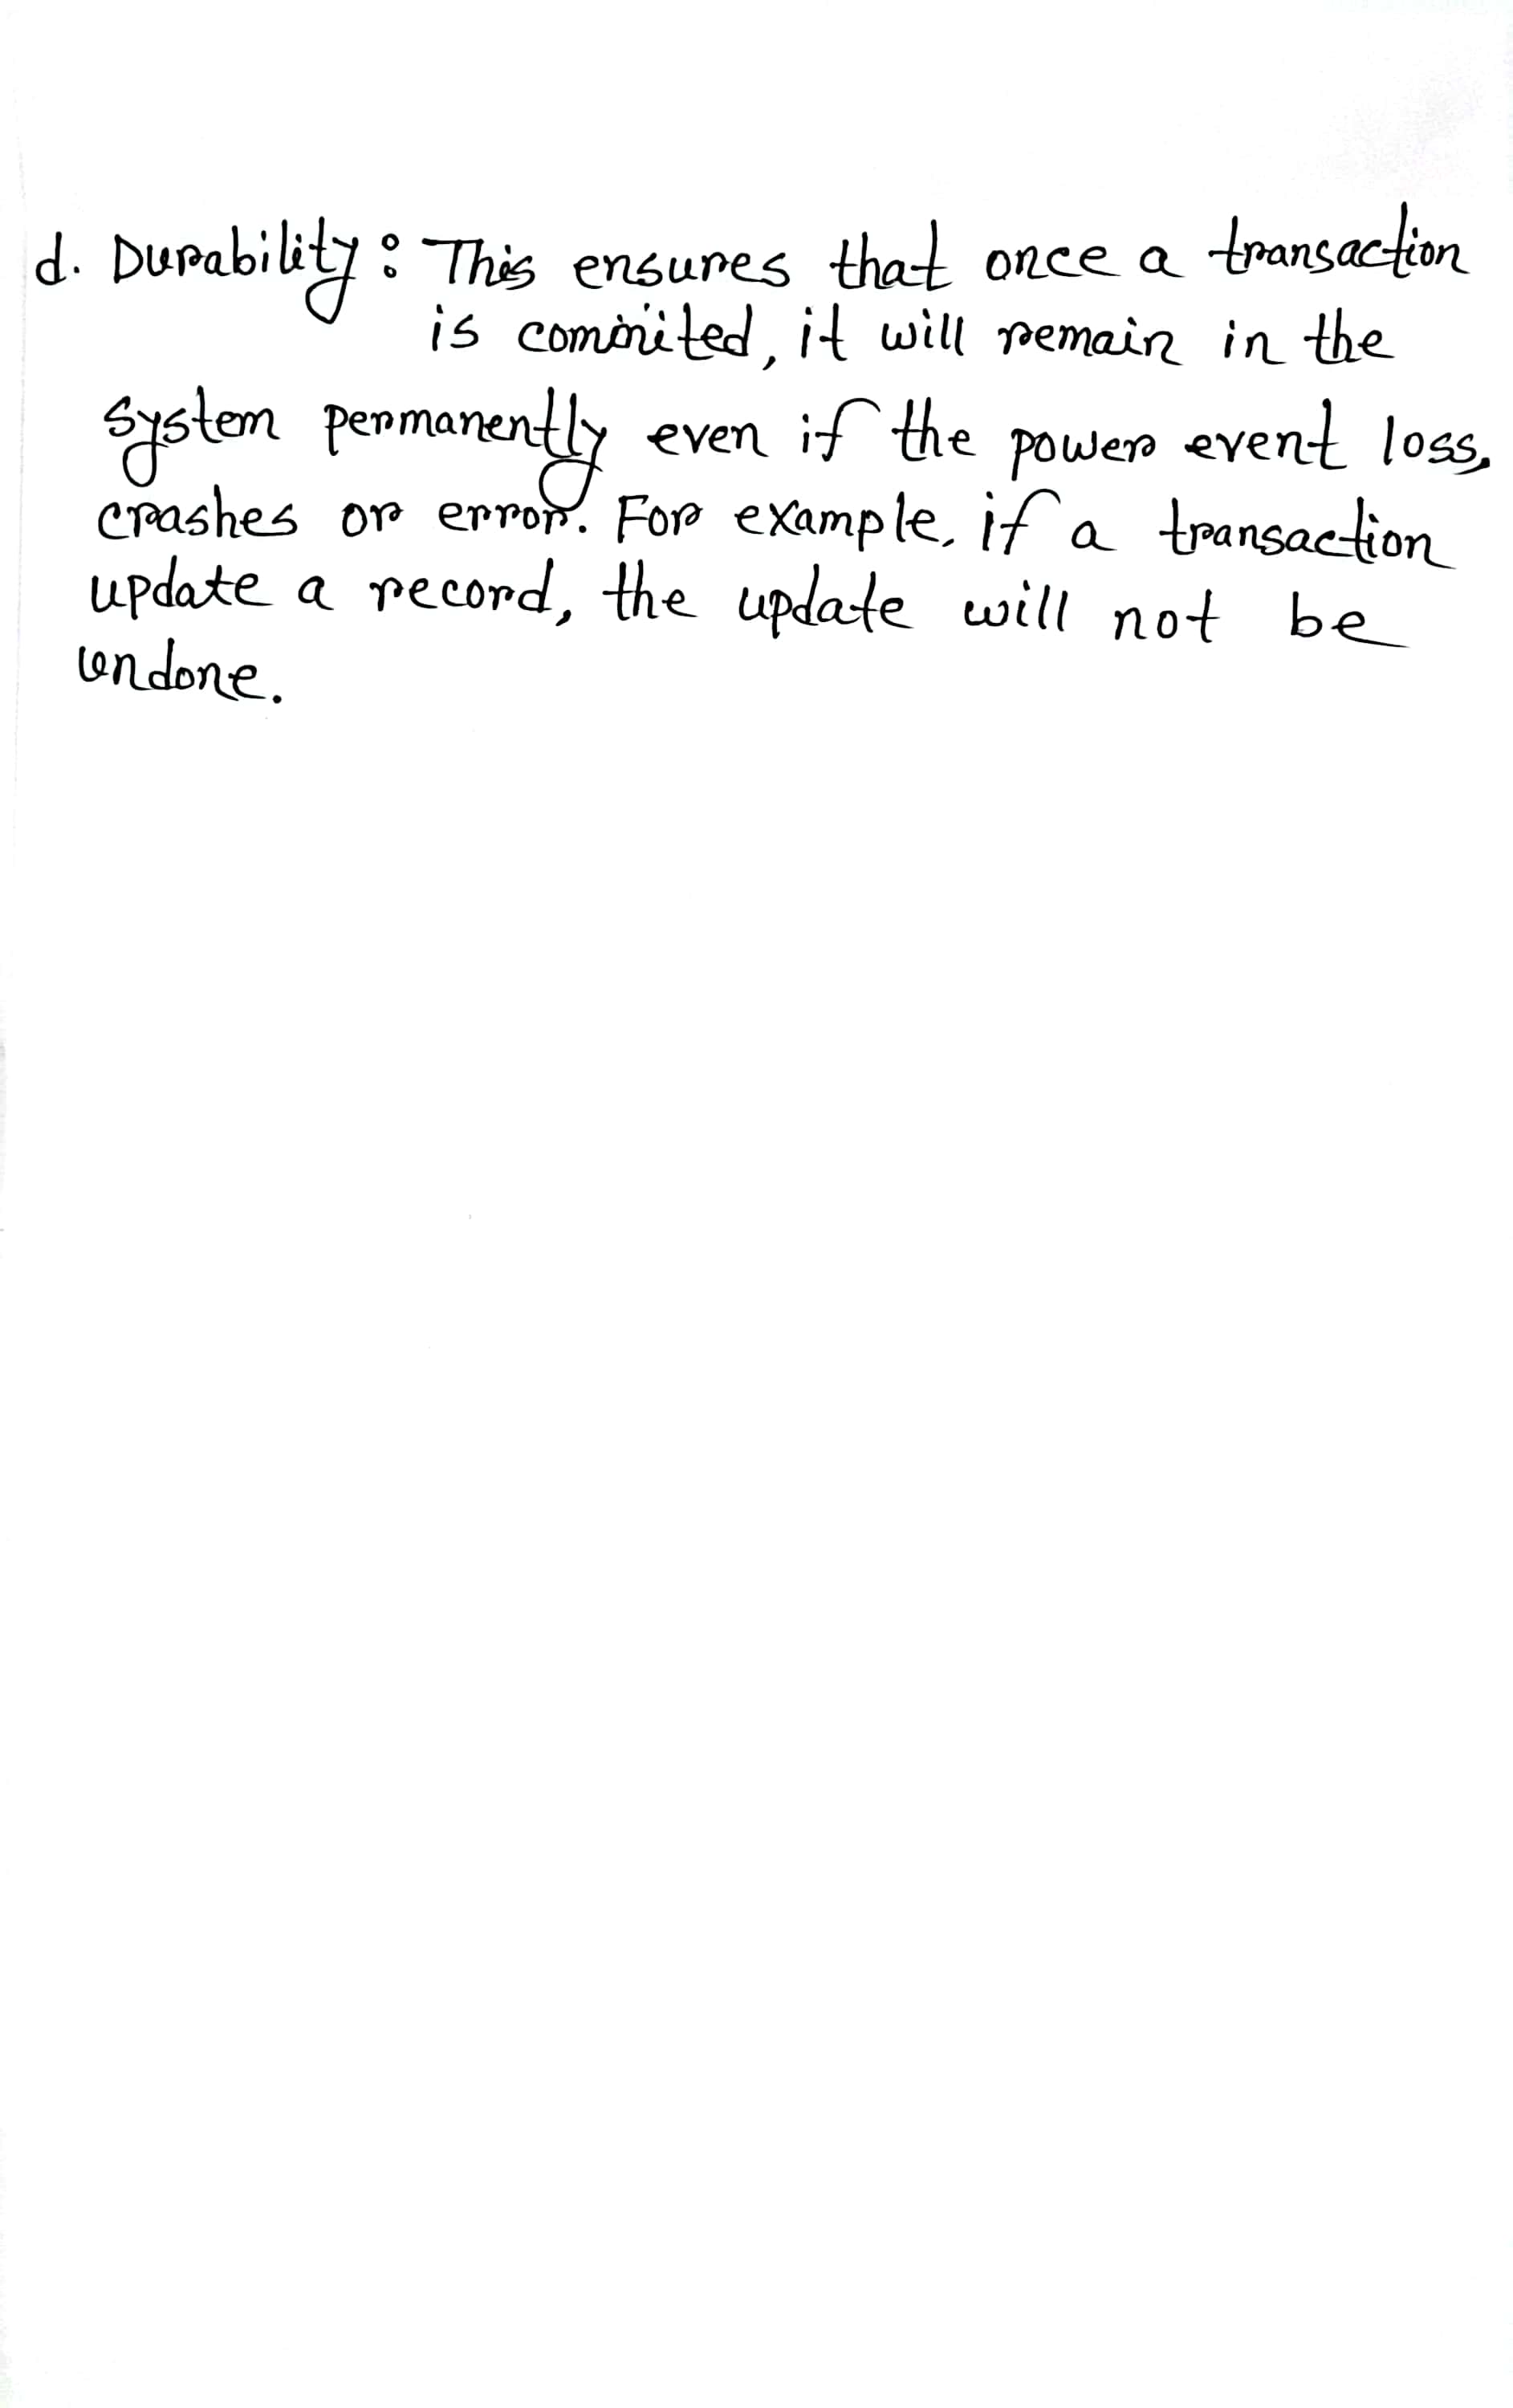 d. Durability: This ensures that once a transaction
is commited, it will remain in the
system permanently even if the power event loss,
crashes or error. For example, if a transaction
update a record, the update will not be
undone.